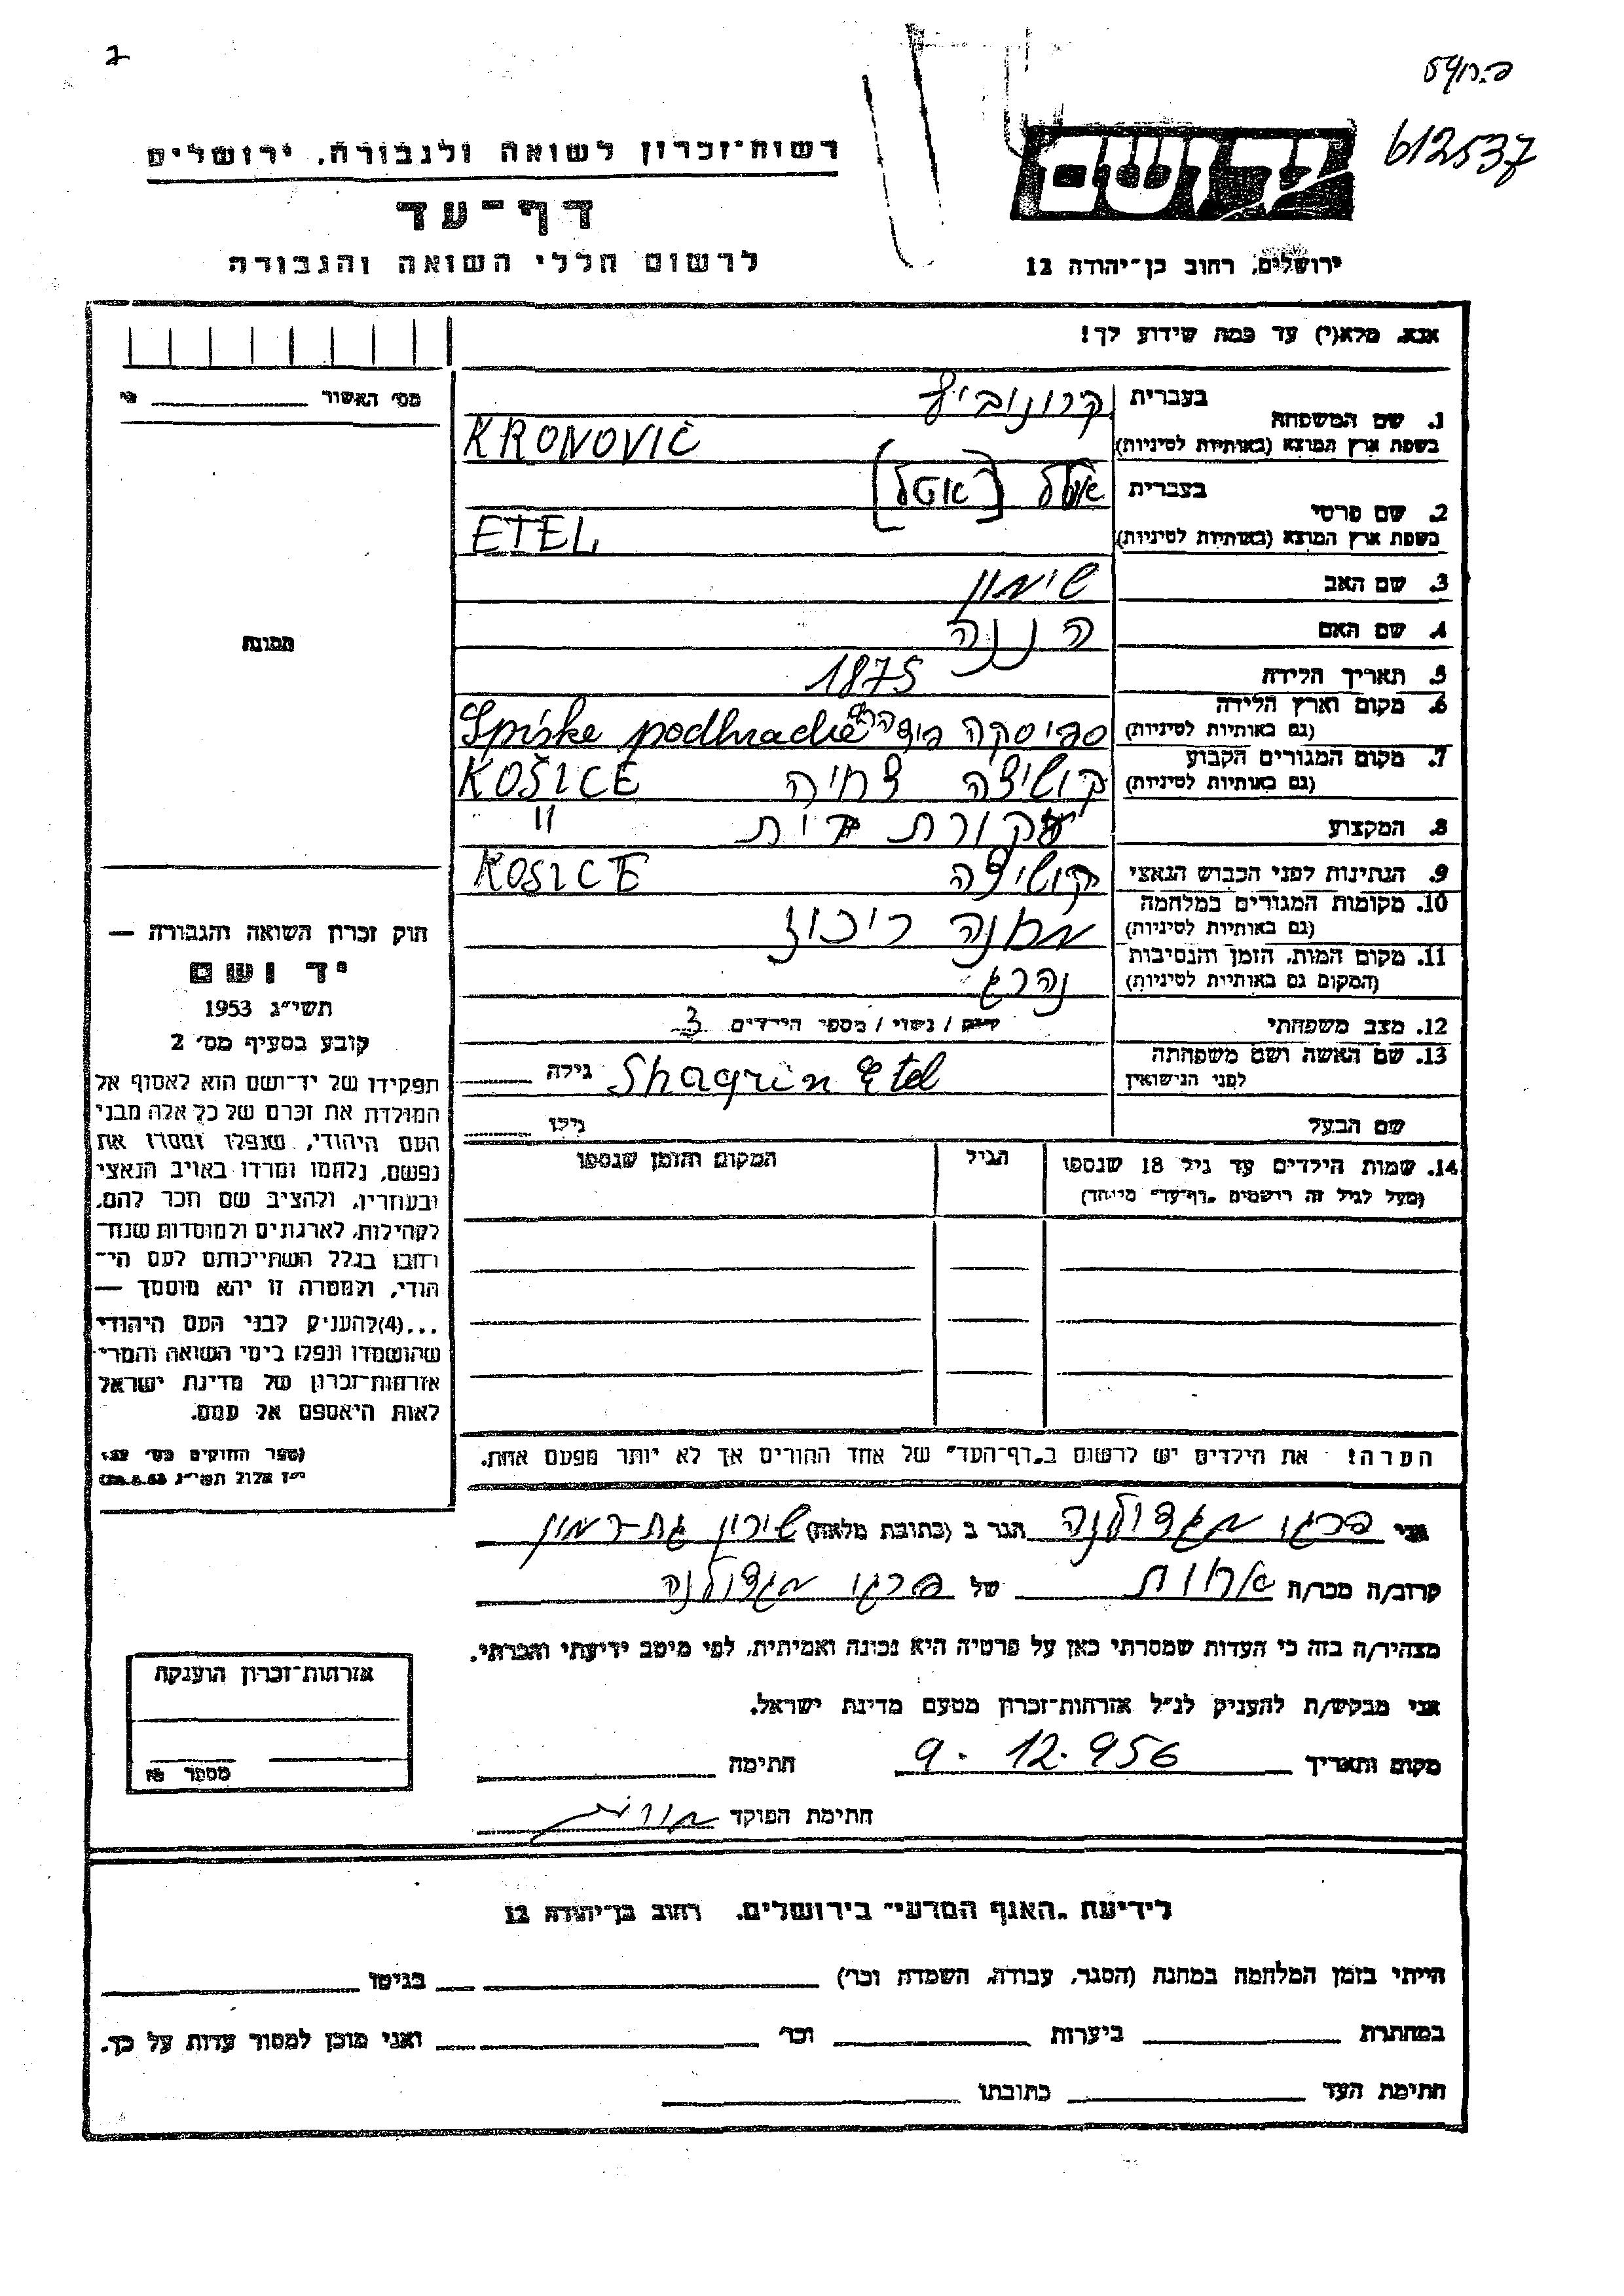 רשות־זכרון לשואה ולגבורה, ירושלים
דף־עד
לרשום חללי השואה והגבורה
612537
ירושלים, רחוב בן־יהודה 12
אנא, מלא(י) עד כמה שידוע לך!
מס׳ האשור
1. שם המשפחה
בעברית
קרונוביץ
בשפת ארץ המוצא (באותיות לטיניות)
KRONOVIČ
2. שם פרטי
בעברית
(אטל)
בשפת ארץ המוצא (באותיות לטיניות)
ETEL
3. שם האב
שימון
4. שם האם
הננה
5. תאריך הלידה
1875
6. מקום וארץ הלידה
(גם באותיות לטיניות)
ספיסקה Spiske podhradie
7. מקום המגורים הקבוע
(גם באותיות לטיניות)
קושיצה צחיה KOŠICE
8. המקצוע
עקורת בית "
9. הנתינות לפני הכבוש הנאצי
קושיצה KOSICE
10. מקומות המגורים במלחמה
(גם באותיות לטיניות)
מחנה ריכוז
11. מקום המות, הזמן והנסיבות
(המקום גם באותיות לטיניות)
נהרג
12. מצב משפחתי
רווק / נשוי / מספר הילדים 3
13. שם האשה ושם משפחתה
לפני הנישואין
Shagrin Etel גילה
שם הבעל
גילו
תמונה
חוק זכרון השואה והגבורה —
יד ושם
תשי״ג 1953
קובע בסעיף מס׳ 2
תפקידו של יד־ושם הוא לאסוף אל
המולדת את זכרם של כל אלה מבני
העם היהודי, שנפלו ומסרו את
נפשם, נלחמו ומרדו באויב הנאצי
ובעוזריו, ולהציב שם וזכר להם,
לקהילות, לארגונים ולמוסדות שנח־
רחבו בגלל השתייכותם לעם הי־
הודי, ולמטרה זו יהא מוסמך —
...(4)להעניק לבני העם היהודי
שהושמדו ונפלו בימי השואה והמרי
אזרחות־זכרון של מדינת ישראל
לאות היאספם אל עמם.
(ספר החוקים מס׳ 132
י״ז אלול תשי״ג 28.8.53)
14. שמות הילדים עד גיל 18 שנספו
(מעל לגיל זה רושמים „דף־עד״ מיוחד)
הגיל
המקום והזמן שנספו
הערה! את הילדים יש לרשום ב„דף־העד״ של אחד ההורים אך לא יותר מפעם אחת.
אני פרגו מגדולנה הגר ב (כתובת מלאה) שיכון גת-רמון
קרוב/ה מכר/ה אחות של פרגו מגדולנה
מצהיר/ה בזה כי העדות שמסרתי כאן על פרטיה היא נכונה ואמיתית, לפי מיטב ידיעתי והכרתי.
אני מבקש/ת להעניק לנ״ל אזרחות־זכרון מטעם מדינת ישראל.
מקום ותאריך 9. 12. 956 חתימה
חתימת הפוקד
אזרחות־זכרון הוענקה
מספר
לידיעת „האגף המדעי״ בירושלים, רחוב בן־יהודה 12
הייתי בזמן המלחמה במחנה (הסגר, עבודה, השמדה וכר׳) בגיטו
במחתרת ביערות וכר׳ ואני מוכן למסור עדות על כך.
חתימת העד כתובתו